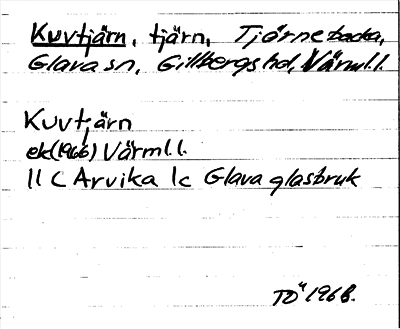 Kuvtjärn, tjärn, Tjärnebacka,
Glava sn, Gillbergs hd, Värml.l.
Kuvtjärn
ek(1966) Värml.l.
11 C Arvika 1c Glava glasbruk
TÖ 1968.